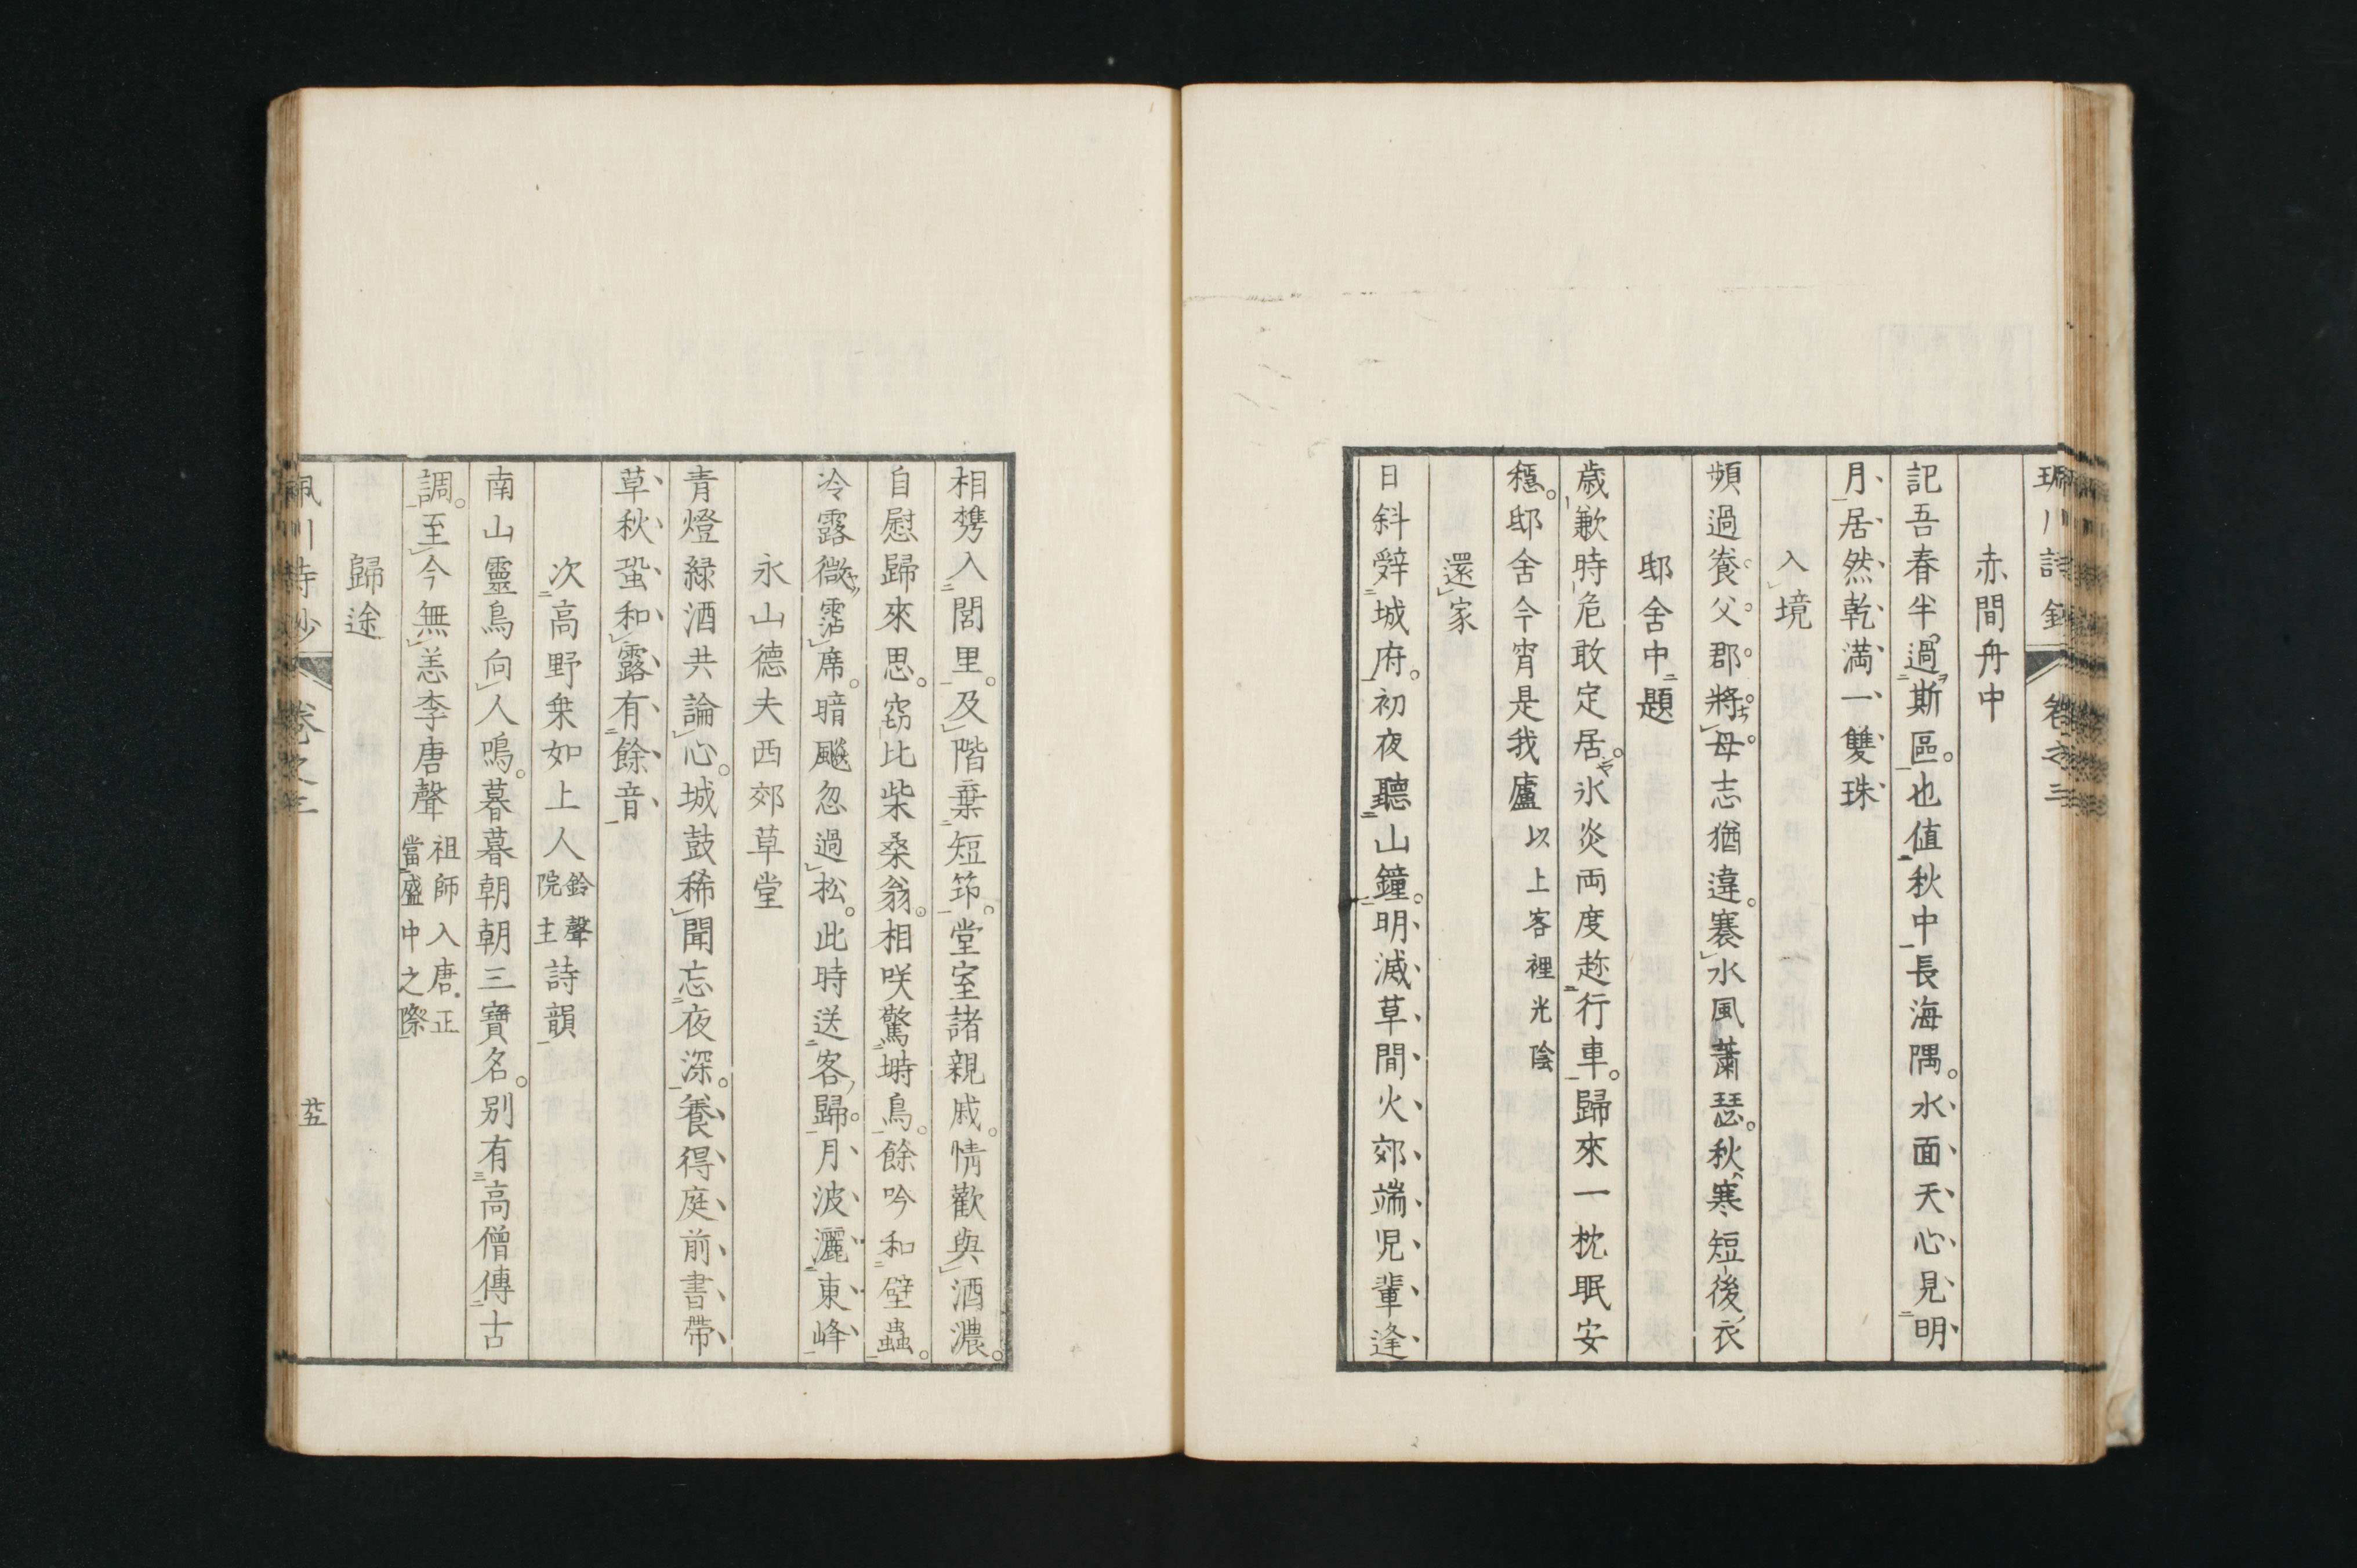 川詩鈔 卷之三
赤間舟中
記吾春半過斯區。也值秋中長海隅。水面天心見明
月居然乾滿一雙珠
入境
頻過養父郡。將母志猶違。褰水風蕭瑟。秋寒短後衣
邸舍中題
歳歉時危敢定居。氷炎両度趂行車。歸來一枕眠安
穩。邸舍今宵是我廬 以上客裡光陰
還家
日斜辤城府。初夜聽山鐘。明滅草間火郊端児輩逢
相携入閭里。及階棄短筇。堂室諸親戚。情歡與酒濃。
自慰歸來思。窃比柴桑翁。相咲驚塒鳥。餘吟和壁蟲。
冷露微霑席。暗飈忽過松。此時送客歸。月波灑東峰
永山德夫西郊草堂
青燈緑酒共論心。城鼓稀聞忘夜深。養得庭前書帶
草秋蛩和露有餘音
次高野椉如上人鈴聲院主詩韻
南山靈鳥向人鳴。暮暮朝朝三寶名。别有高僧傳古
調。至今無恙李唐聲 祖師入唐.正當盛中之際
歸途
川詩鈔 卷之三 廿五